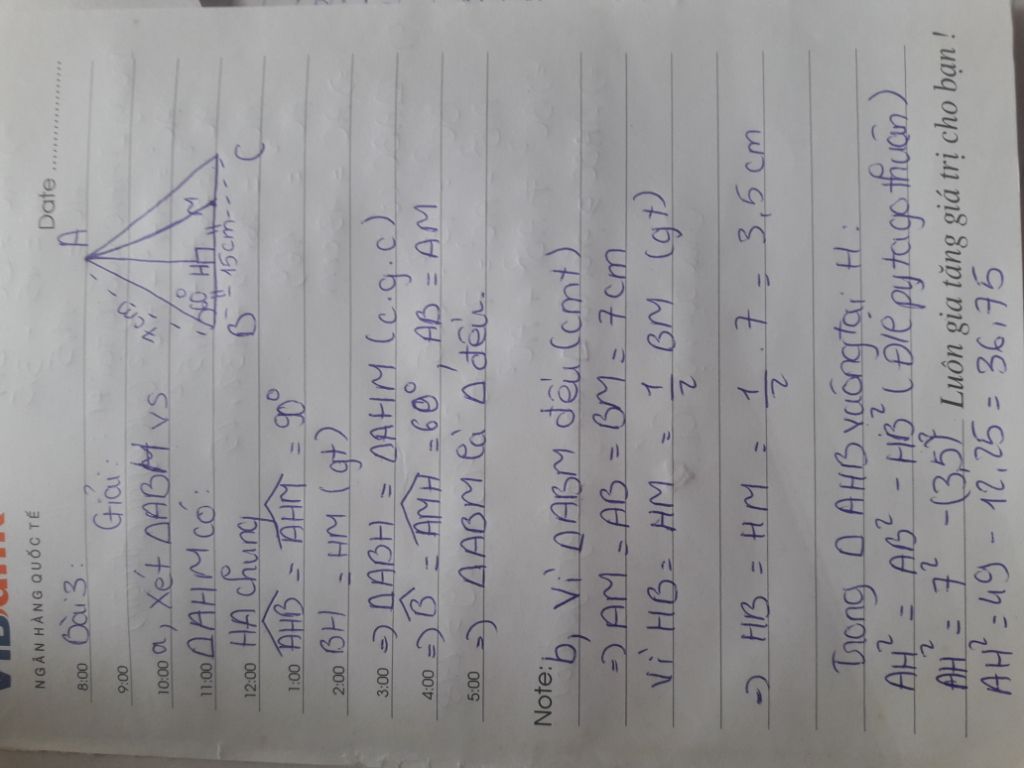 NGÂN HÀNG QUỐC TẾ
Date
8:00 Bài 3:
A
9:00 Giải:
7cm
10:00 a, Xét ΔABM vs
11:00 ΔAHM có:
60° H M
12:00 HA chung
B 15cm C
1:00 AHB = AHM = 90°
2:00 BH = HM (gt)
3:00 => ΔABH = ΔAHM (c.g.c)
4:00 => B = AMH = 60°, AB = AM
5:00 => ΔABM là Δ đều.
Note: b, Vì ΔABM đều (cmt)
=> AM = AB = BM = 7cm
Vì HB = HM = 1/2 BM (gt)
=> HB = HM = 1/2 . 7 = 3,5 cm
Trong Δ AHB vuông tại H:
AH² = AB² - HB² (Đlé pytago thuận)
AH² = 7² - (3,5)²
Luôn gia tăng giá trị cho bạn!
AH² = 49 - 12,25 = 36,75